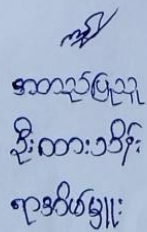 အတည်ပြုသူ
ဦးထားသိန်း
ရာအိမ်မှူး